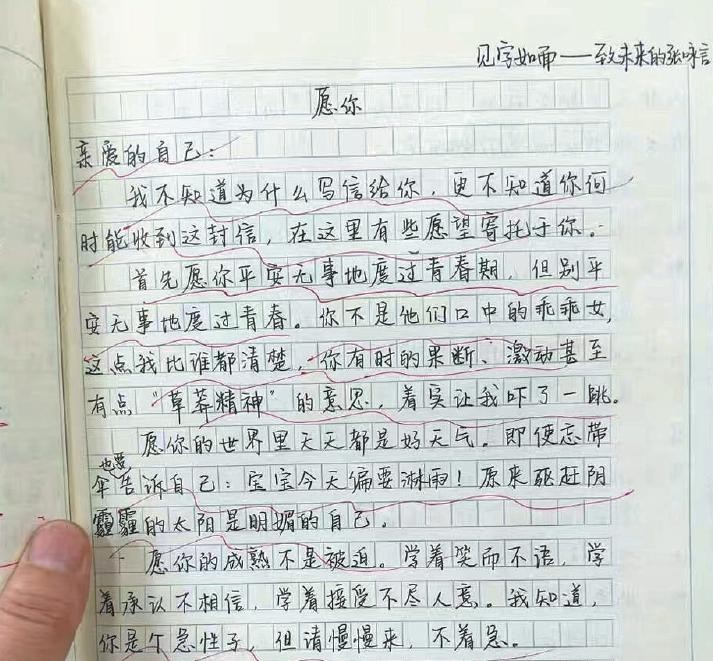 见字如面——致未来的张咏言
愿你
亲爱的自己：
我不知道为什么写信给你，更不知道你何
时能收到这封信，在这里有些愿望寄托于你。
首先愿你平安无事地度过青春期，但别平
安无事地度过青春。你不是他们口中的乖乖女，
这点我比谁都清楚，你有时的果断、激动甚至
有点“草莽精神”的意思，着实让我吓了一跳。
愿你的世界里天天都是好天气。即便忘带
伞也要告诉自己：宝宝今天偏要淋雨！原来驱赶阴
霾的太阳是明媚的自己。
愿你的成熟不是被迫。学着笑而不语，学
着承认不相信，学着接受不尽人意。我知道，
你是个急性子，但请慢慢来，不着急。